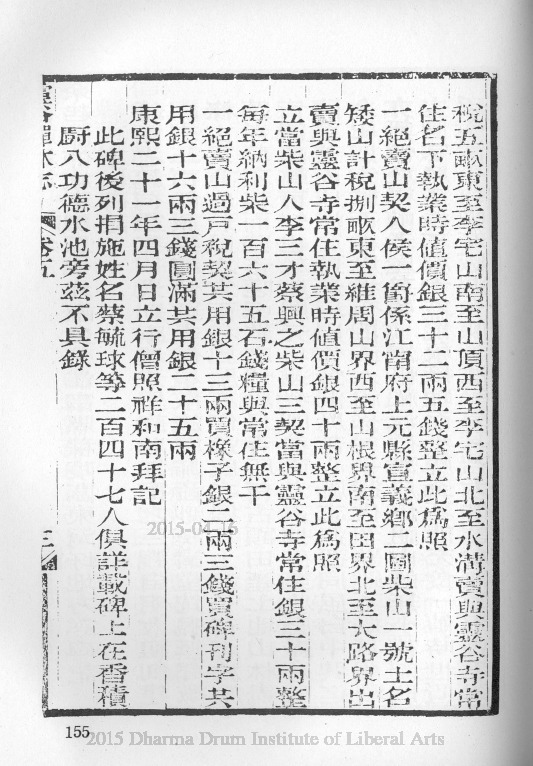 稅五畝東至李宅山南至山頂西至李宅山北至水溝賣與靈谷寺常
住名下執業時値價銀三十二兩五錢整立此爲照
一絕賣山契人侯一衡係江甯府上元縣宣義鄉二圖柴山一號土名
矮山計稅捌畝東至維周山界西至山根界南至田界北至大路界出
賣與靈谷寺常住執業時値價銀四十兩整立此爲照
立當柴山人李三才蔡興之柴山三契當與靈谷寺常住銀三十兩整
每年納利柴一百六十五石錢糧與常住無干
一絕賣山過戶稅契共用銀十三兩買椽子銀二兩三錢買碑刊字共
用銀十六兩三錢圓滿共用銀二十五兩
康熙二十一年四月日立行僧照祥和南拜記
此碑後列捐施姓名蔡毓球等二百四十七人俱詳載碑上在香積
廚八功德水池旁茲不具錄
靈谷禪林志
卷五
三
155
2015-04-16
2015 Dharma Drum Institute of Liberal Arts